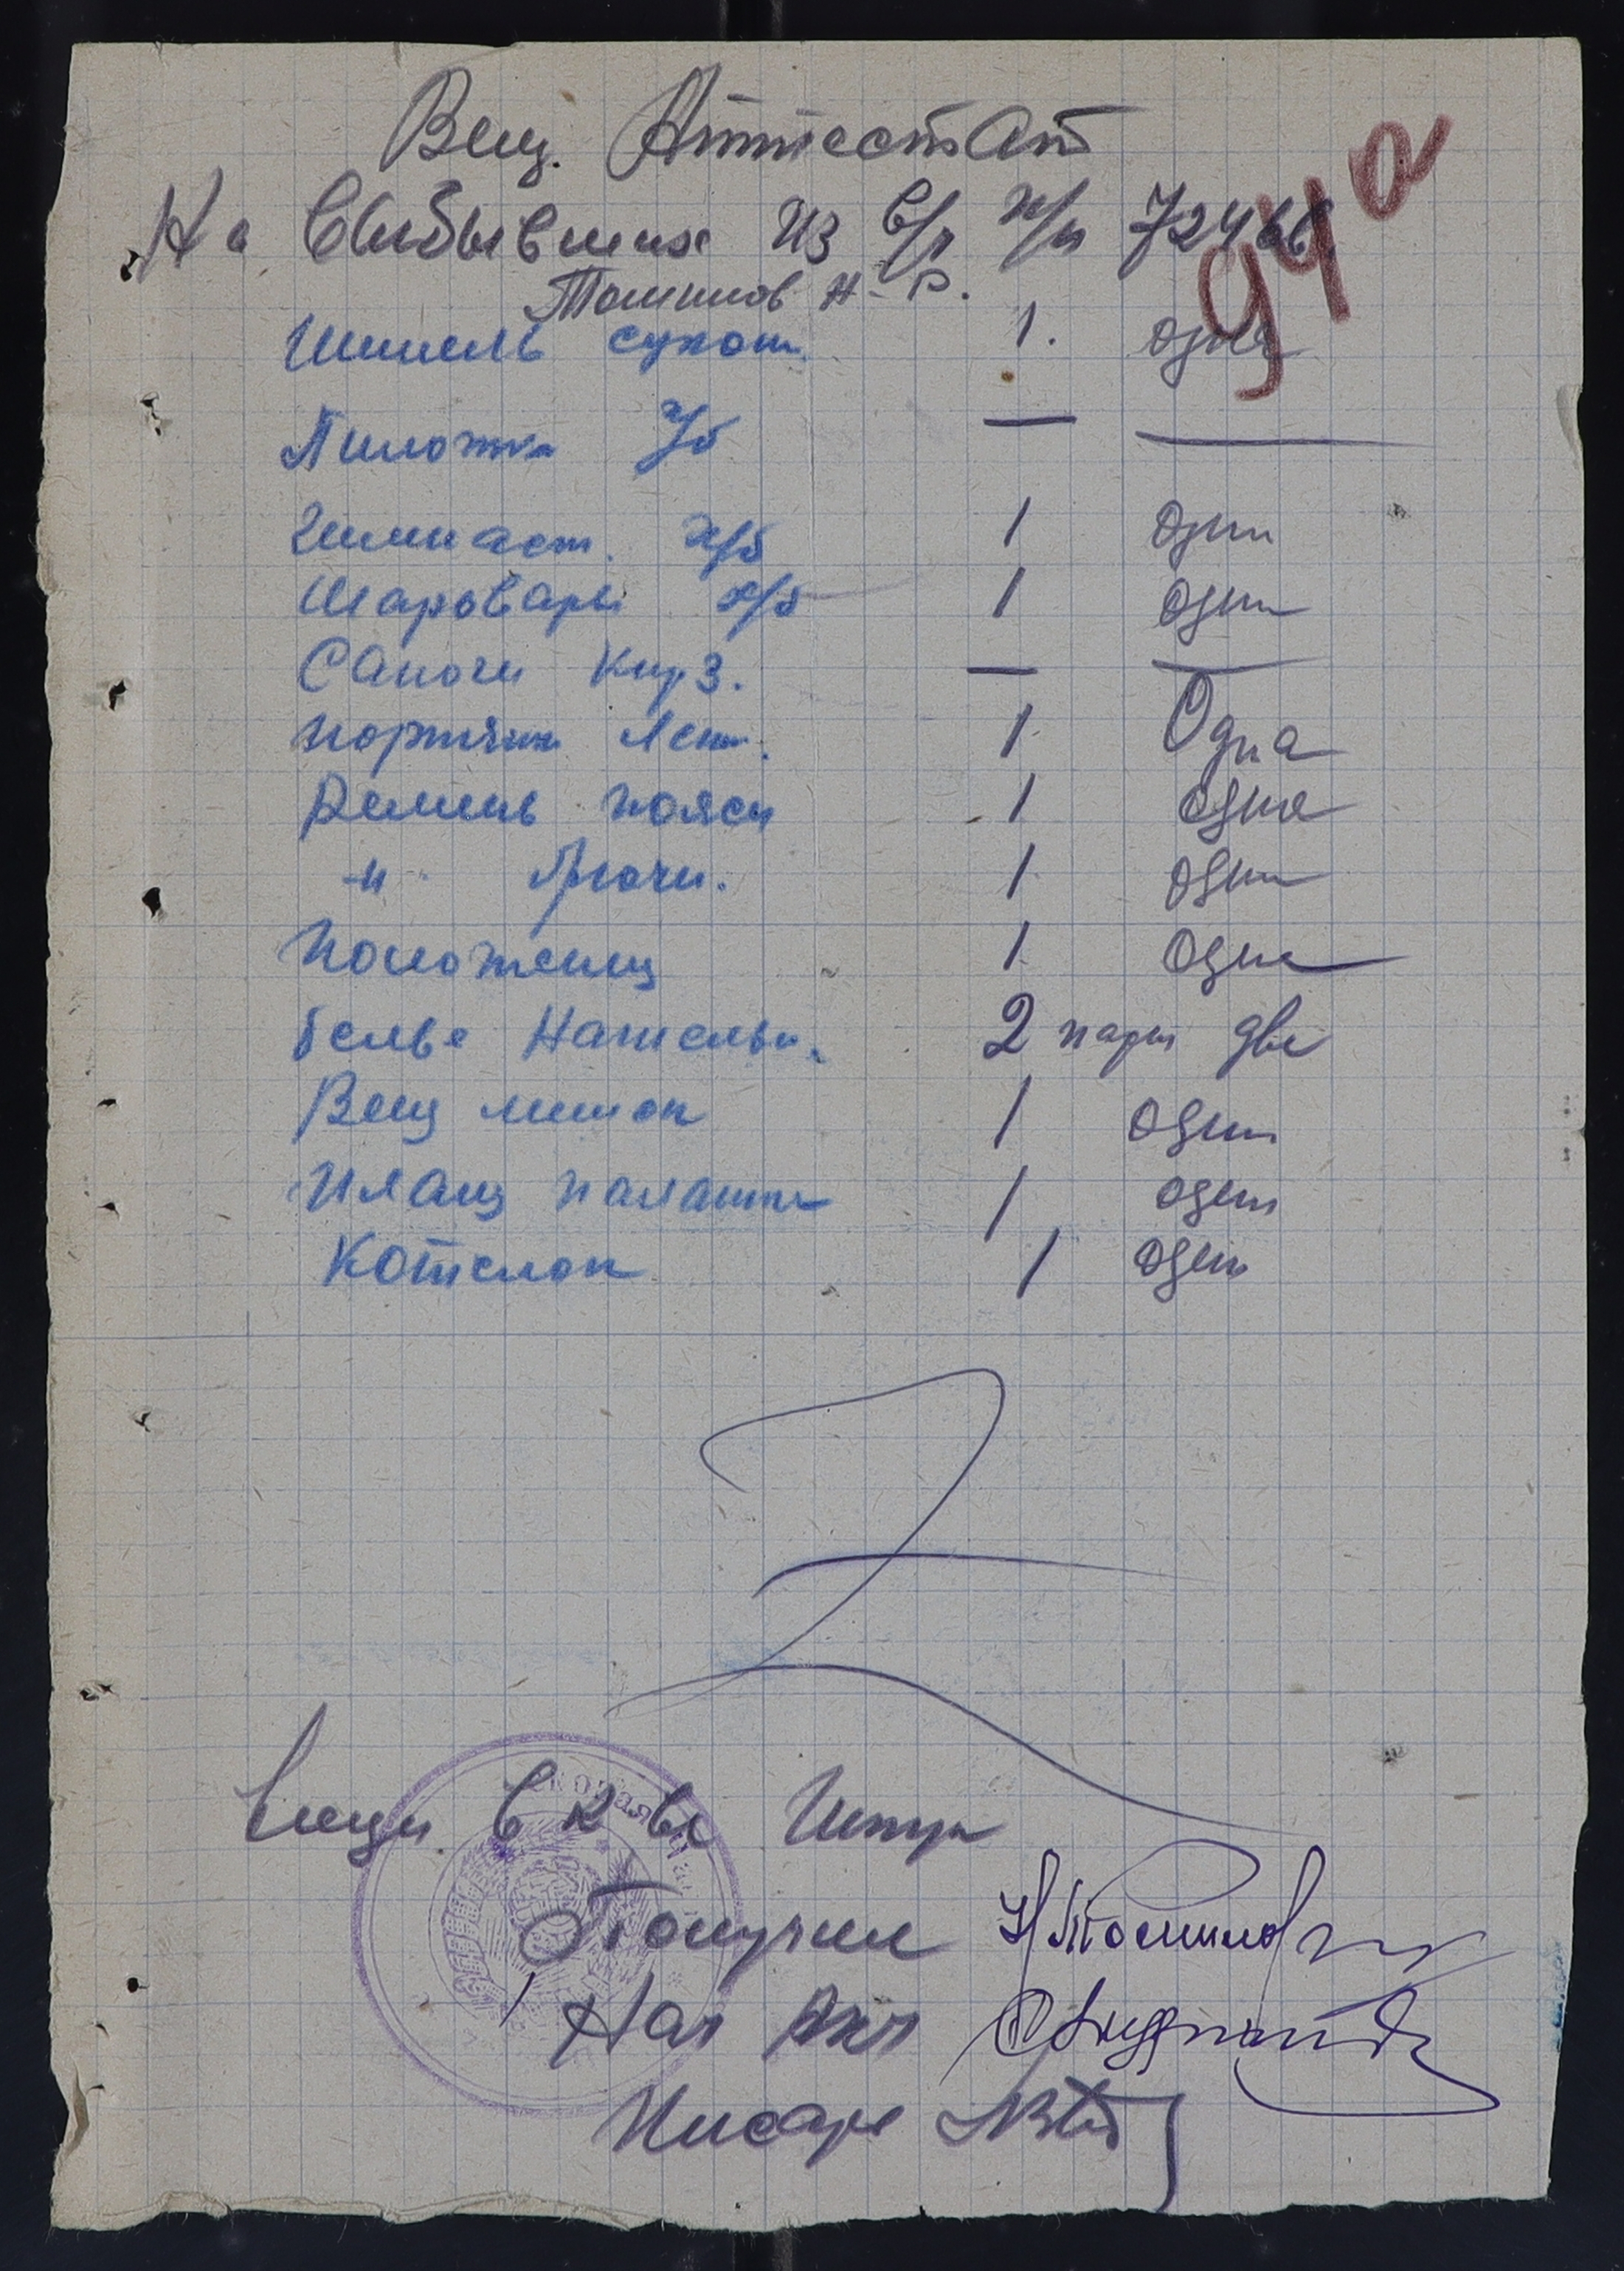 Вещ. Аттестат
94а
На выбывших из в/ч п/п 72466
Тошилов Н. Р.
Шинель сукон. 1. одна
Пилотка х/б — —
Гимнаст. х/б 1 один
Шаровары х/б 1 один
Сапоги кирз. — —
портянки летн. 1 Одна
Ремень поясн 1 одна
-"- брючн. 1 один
Полотенц 1 одна
белье Нательн. 2 пары две
Вещ мешок 1 один
Плащ палатка 1 один
Котелок 1 один
Вещи
Получил Н Тошилов
Нач
Писарь